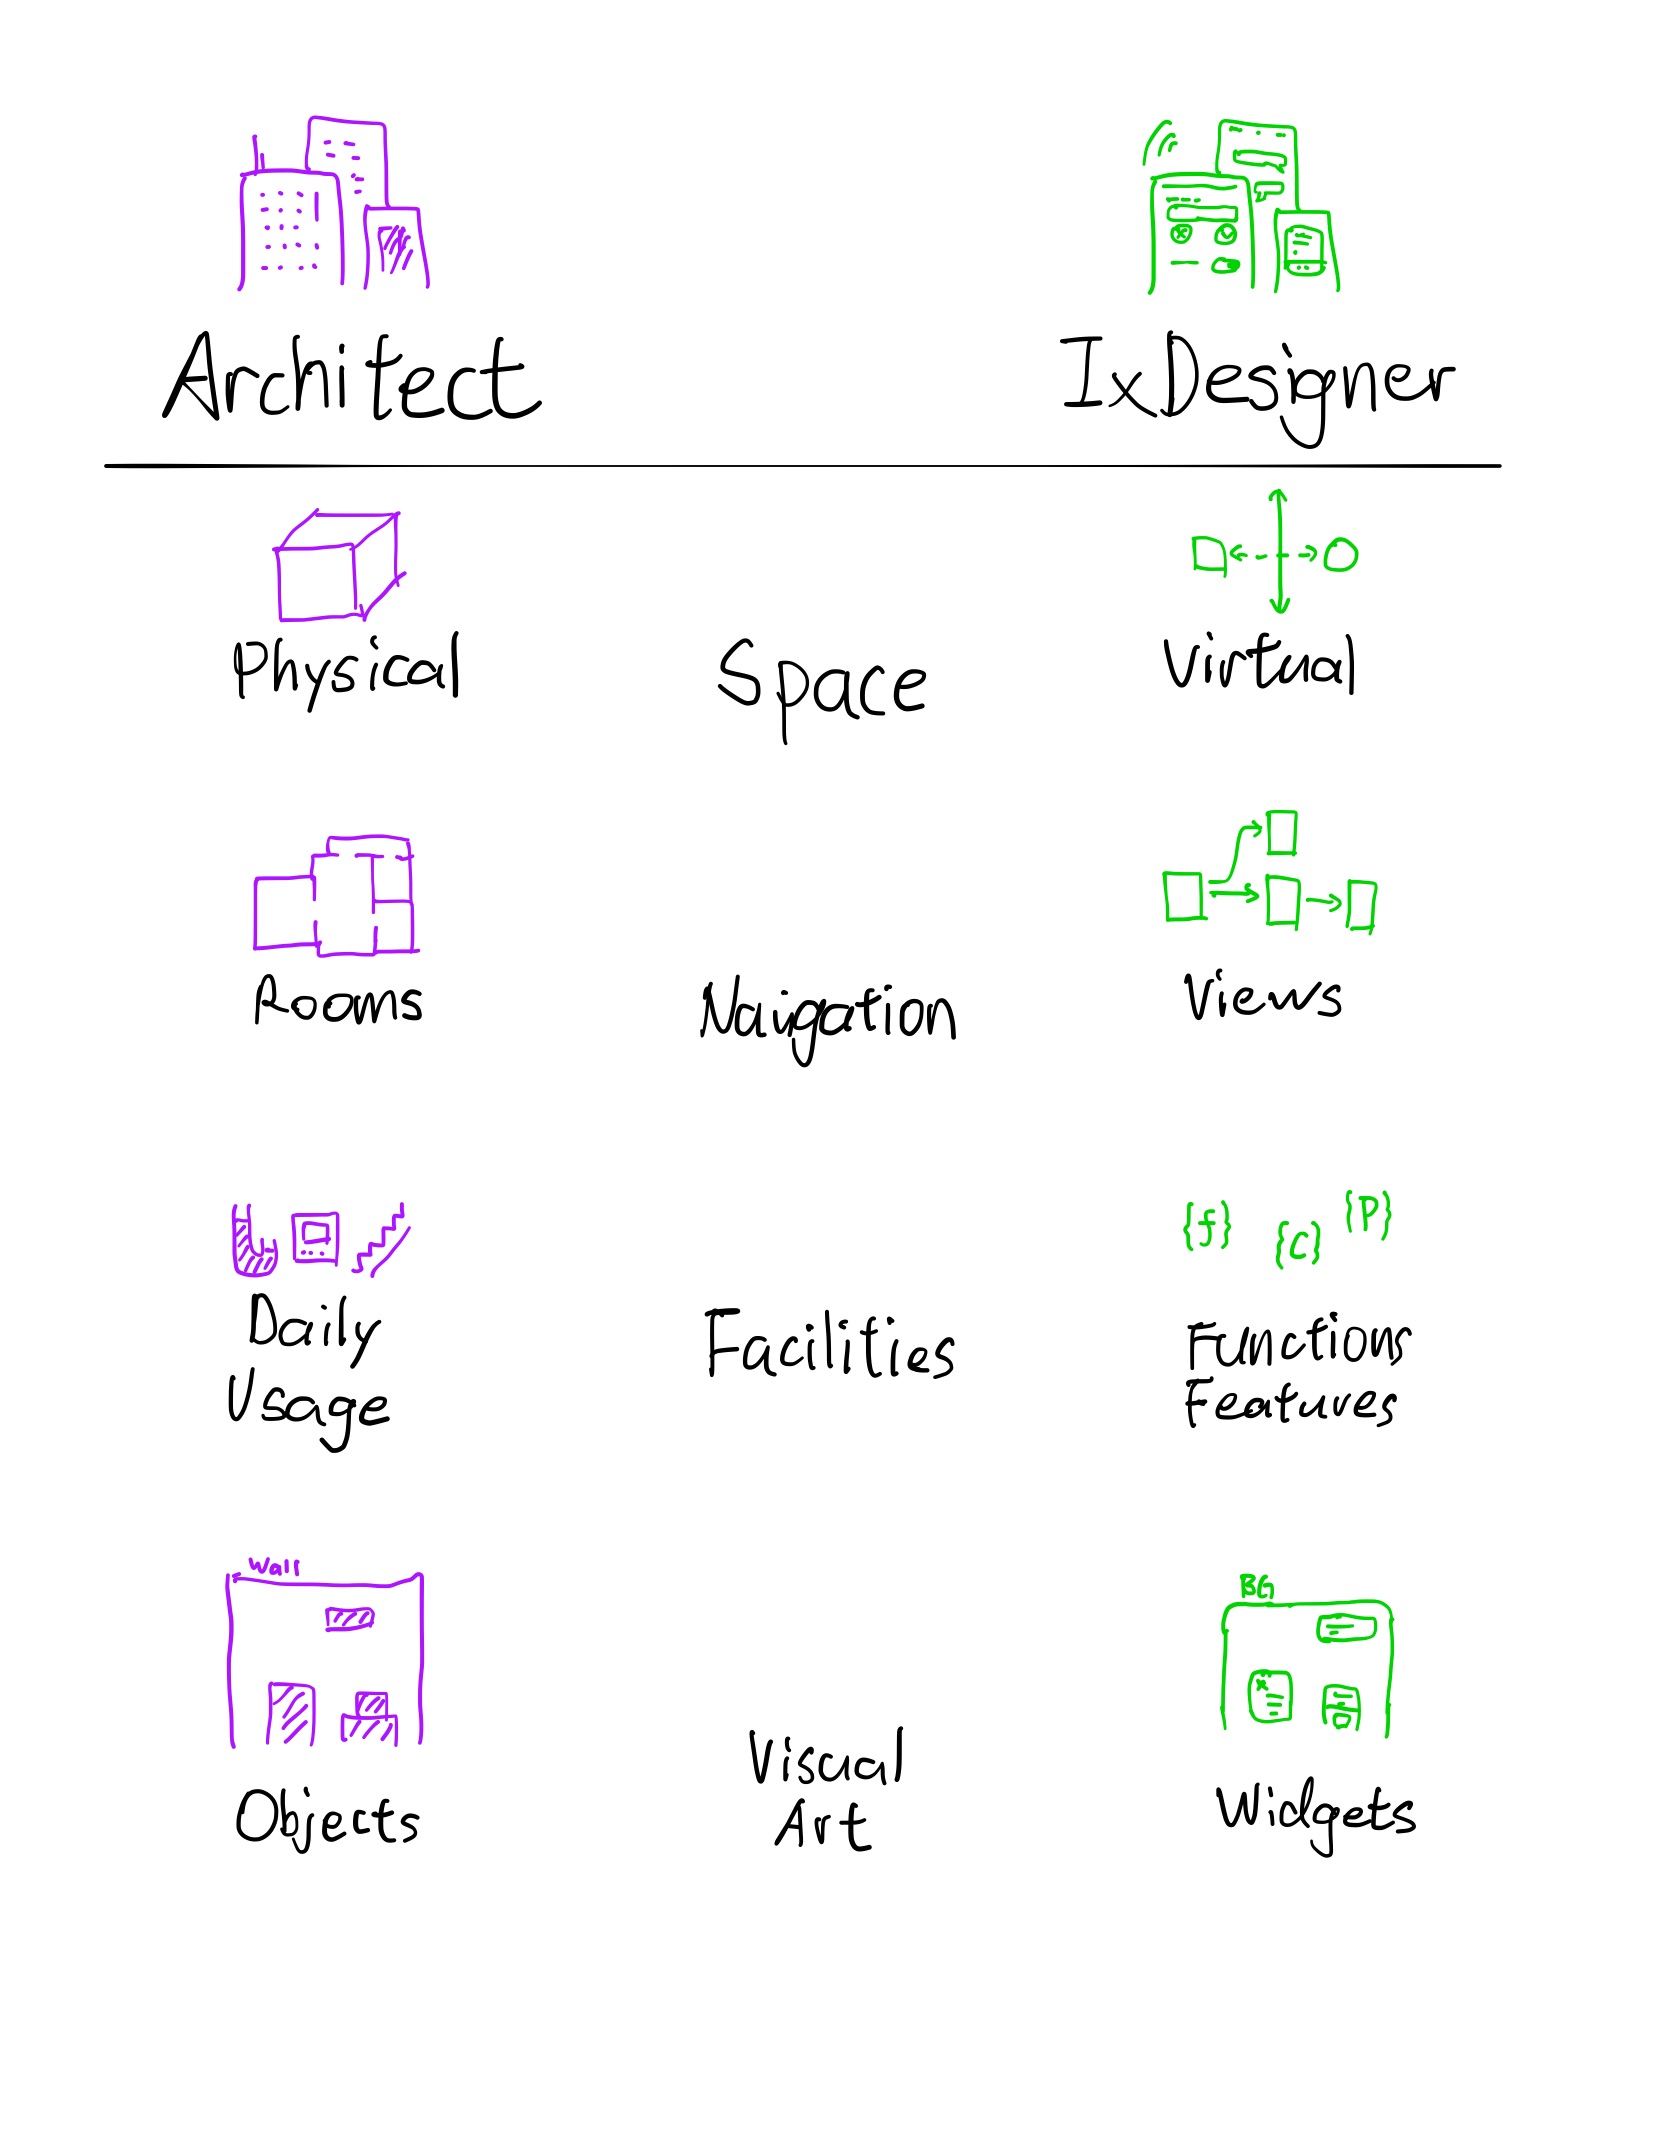 Architect IxDesigner
Physical Space Virtual
Rooms Naigation Views
{f} {c} {P}
Daily Usage Facilities Functions Features
Wall BG
Objects Visual Art Widgets